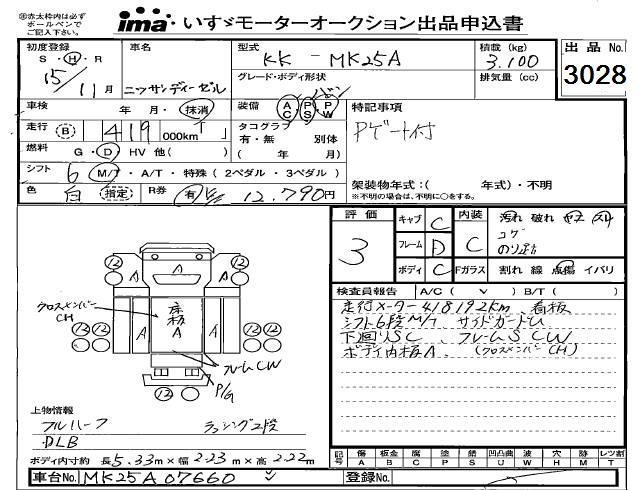 ㊟赤太枠内は必ず
ボールペンで
ご記入下さい。
ima いすゞモーターオークション出品申込書
初度登録
S・H・R
15/11月
車名
ニッサンディーゼル
型式
KK - MK25A
積載 (kg)
3,100
出品No.
3028
グレード・ボディ形状
排気量 (cc)
車検 年 月・抹消
装備 AC PS PW
特記事項
Pゲート付
走行 (B) 419 000km
タコグラフ
有・無 別体
( 年 月)
燃料 G・D・HV 他( )
シフト 6 M/T・A/T・特殊 (2ペダル・3ペダル)
架装物年式:( 年式)・不明
※不明の場合は、不明に○をする。
色 白 (指定) R券 有 12,790円
評価
3
キャブ C
フレーム D
ボディ C
内装 C
Fガラス
汚れ 破れ ヤニ スリ
コゲ
のり跡
割れ 線 点傷 イバリ
検査員報告 A/C ( V ) B/T ( )
走行メーター418192km 看板
シフト6段M/T サイドガードU
下廻りSC フレームSCW
ボディ内板A (クロスメンバーCH)
12 A 12
クロスメンバー
CH
A A 床板A A
12 12
フレームCW
P/G
12
上物情報
フルハーフ ラッシング2段
DLB
ボディ内寸約 長5.33m×幅2.23m×高2.22m
記号 傷 板金 腐 塗 錆 凹凸曲 波 穴 跡 レツ割
A B C P S U W H M T
車台No. MK25A07660
登録No.